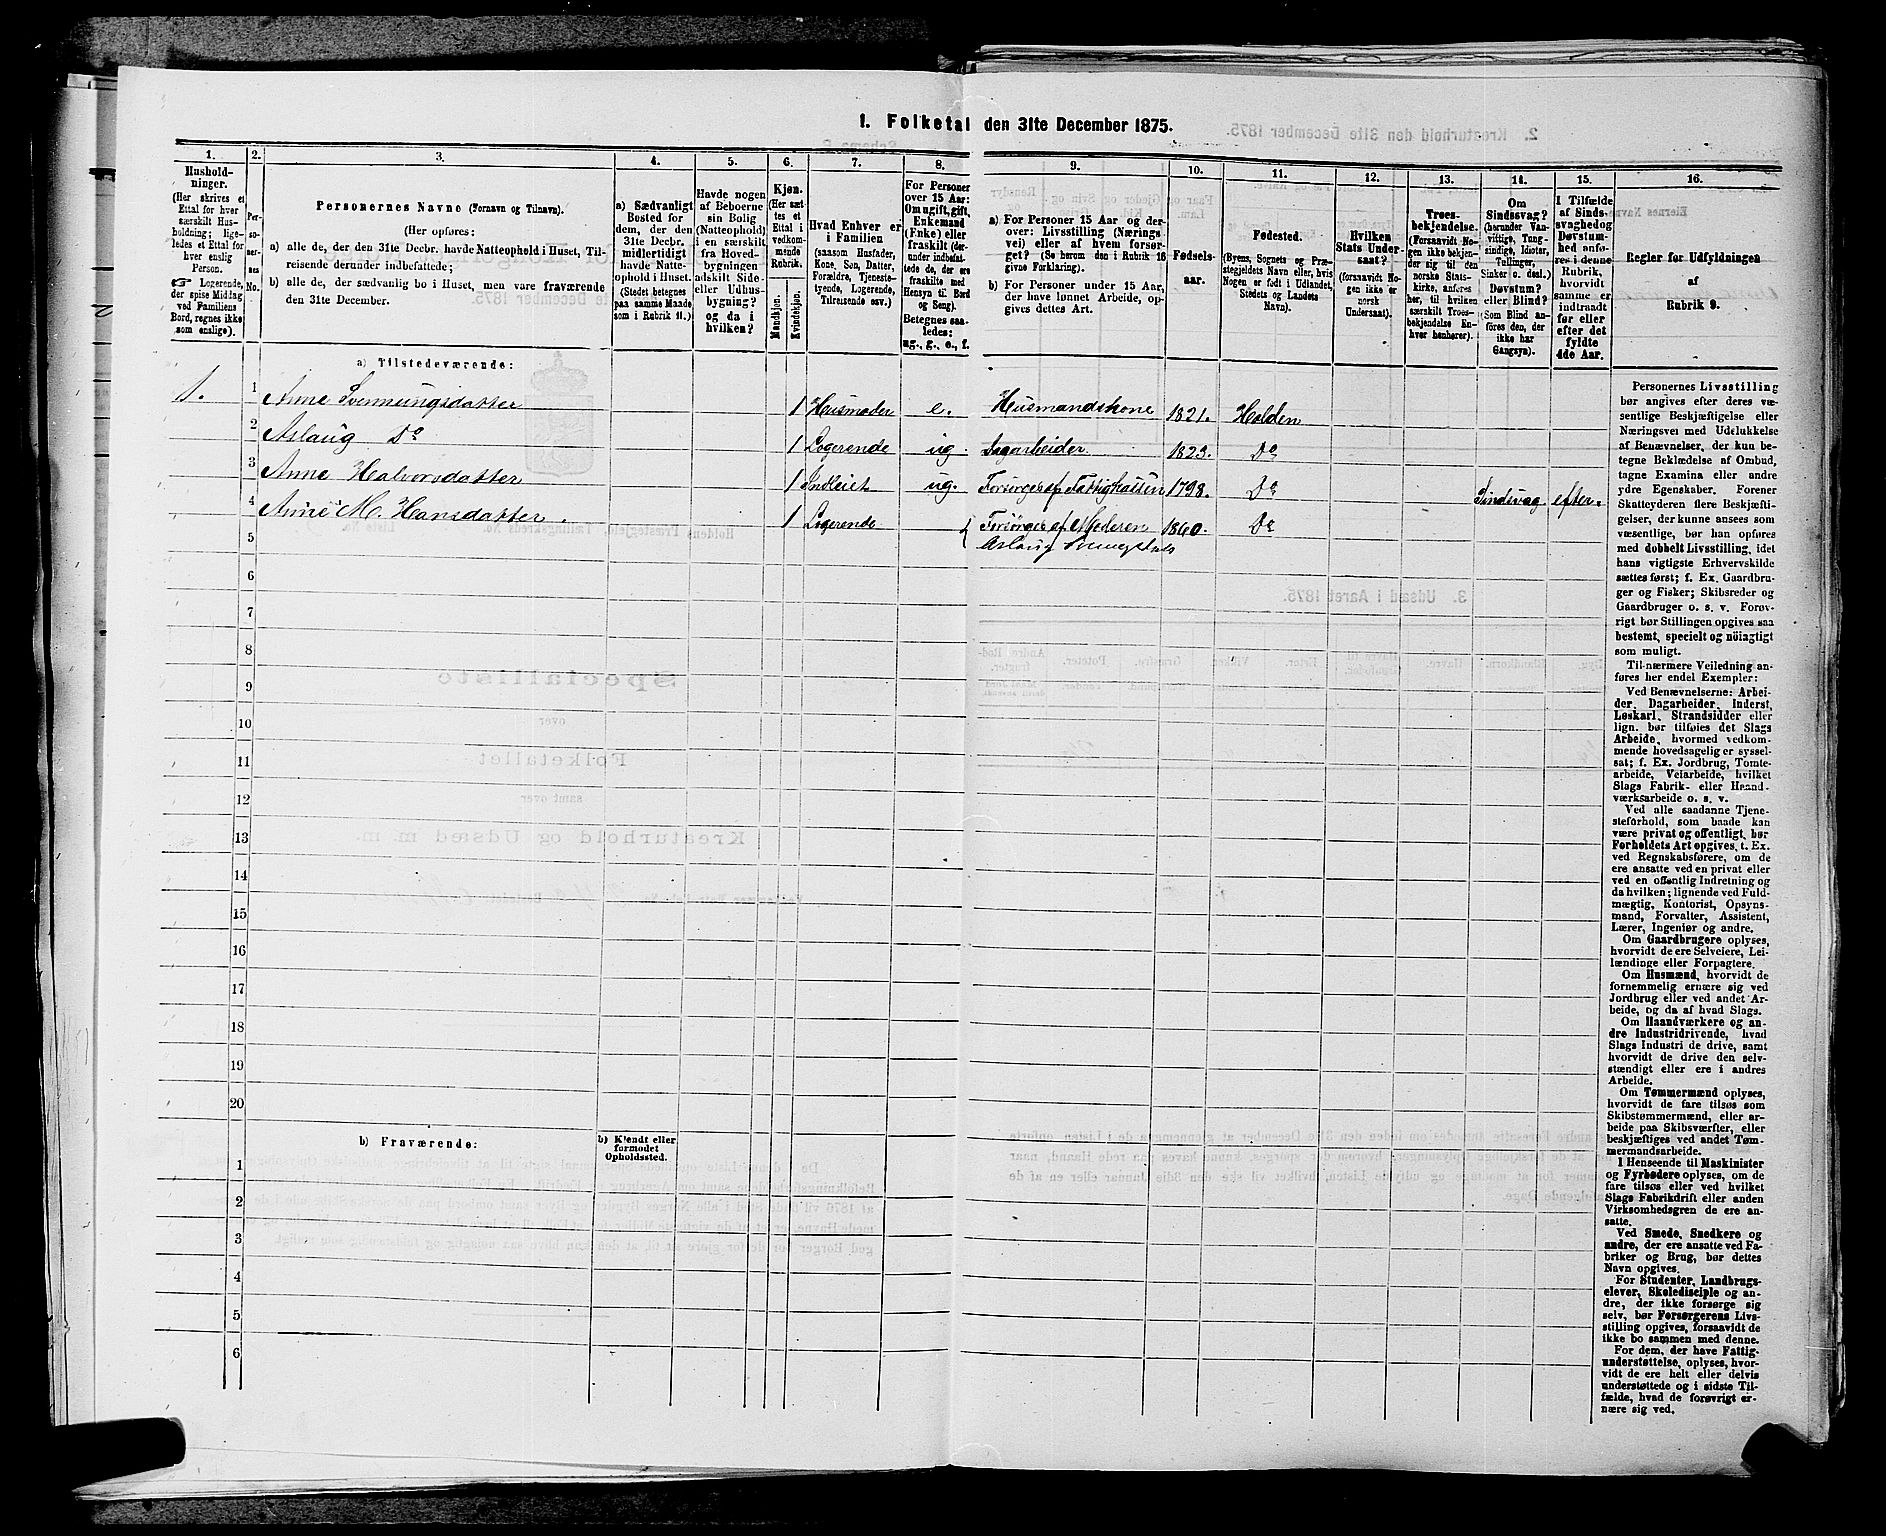 1. Folketal den 31te December 1875.
1. 2. 3. 4. 5. 6. 7. 8. 9. 10. 11. 12. 13. 14. 15. 16.
Hushold-
ninger.
(Her skrives et
Ettal for hver
særskilt Hus-
holdning; lige-
ledes et Ettal for
hver enslig
Person.
☞ Logerende,
der spise Middag
ved Familiens
Bord, regnes ikke
som enslige).
Per-
so-
ner-
nes
No.
Personernes Navne (Fornavn og Tilnavn).
(Her opføres:
a) alle de, der den 31te Decbr. havde Natteophold i Huset, Til-
reisende derunder indbefattede;
b) alle de, der sædvanlig bo i Huset, men vare fraværende
den 31te December.
a) Sædvanligt
Bosted for
dem, der den
31te Decbr.
midlertidigt
havde Natte-
ophold i Huset.
(Stedet betegnes
paa samme Maade
som i Rubrik 11.)
Havde nogen
af Beboerne
sin Bolig
(Natteophold)
i en særskilt
fra Hoved-
bygningen
adskilt Side-
eller Udhus-
bygning?
og da i
hvilken?
Kjøn.
(Her sæt-
tes et
Ettal i
vedkom-
mende
Rubrik.
Mandkjøn.
Kvindekjøn.
Hvad Enhver er
i Familien
(saasom Husfader,
Kone, Søn, Datter,
Forældre, Tjeneste-
tyende, Logerende,
Tilreisende osv.)
For Personer
over 15 Aar:
Om ugift, gift,
Enkemand
(Enke) eller
fraskilt (der-
under indbefat-
tede de, der ere
fraskilte med
Hensyn til Bord
og Seng).
Betegnes saa-
ledes:
ug., g., e., f.
a) For Personer 15 Aar og der-
over: Livsstilling (Nærings-
vei) eller af hvem forsør-
get? (Se herom den i Rubrik 16
givne Forklaring).
b) For Personer under 15 Aar,
der have lønnet Arbeide, op-
gives dettes Art.
Fødsels-
aar.
Fødested.
(Byens, Sognets og Præ-
stegjeldets Navn eller, hvis
Nogen er født i Udlandet,
Stedets og Landets
Navn).
Hvilken
Stats Under-
saat?
(forsaavidt No-
gen ikke er
norsk
Undersaat).
Troes-
bekjendelse.
(Forsaavidt No-
gen ikke bekjen-
der sig til den
norske Stats-
kirke, anføres
her, til hvilken
særskilt Troes-
bekjendelse En-
hver henhører).
Om
Sindssvag?
(herunder Van-
vittige, Tung-
sindige, Idioter,
Tullinger,
Sinker o. desl.)
Døvstum?
eller Blind?
(Som Blind an-
føres den, der
ikke har
Gangsyn).
I Tilfælde
af Sinds-
svaghed og
Døvstum-
hed anfø-
res i denne
Rubrik,
hvorvidt
samme er
indtraadt
før eller
efter det
fyldte
4de Aar.
Regler for Udfyldningen
af
Rubrik 9.
a) Tilstedeværende:
1. 1 Anne Svennungsdatter 1 Husmoder e. Husmandskone 1821. Holden
2 Aslaug Do 1 Logerende ug. Dagarbeider 1823. Do
3 Anne Halvorsdatter 1 Indleiet ug. Forsørges af Fattigkassen 1798. Do Sindsvag efter.
4 Anne M. Hansdatter. 1 Logerende Forsørges af Moderen 1860. Do
5 Aslaug
6
7
8
9
10
11
12
13
14
15
16
17
18
19
20
b) Fraværende:
b) Kjendt eller
formodet
Opholdssted.
1
2
3
4
5
6
Personernes Livsstilling
bør angives efter deres væ-
sentlige Beskjæftigelse eller
Næringsvei med Udelukkelse
af Benævnelser, der kun be-
tegne Beklædelse af Ombud,
tagne Examina eller andre
ydre Egenskaber. Forener
Skatteyderen flere Beskjæfti-
gelser, der kunne ansees som
væsentlige, bør han opføres
med dobbelt Livsstilling, idet
hans vigtigste Erhvervskilde
sættes først; f. Ex. Gaardbru-
ger og Fisker; Skibsreder og
Gaardbruger o. s. v. Forøv-
rigt bør Stillingen opgives saa
bestemt, specielt og nöiagtigt
som muligt.
Til nærmere Veiledning an-
føres her endel Exempler:
Ved Benævnelserne: Arbei-
der, Dagarbeider, Inderst,
Løskarl, Strandsidder eller
lign. bør tilføies det Slags
Arbeide, hvormed vedkom-
mende hovedsagelig er syssel-
sat; f. Ex. Jordbrug, Tomte-
arbeide, Veiarbeide, hvilket
Slags Fabrik- eller Haand-
værksarbeide o. s. v.
Ved alle saadanne Tjene-
steforhold, som baade kan
være privat og offentligt, bør
Forholdets Art opgives, t. Ex.
ved Regnskabsførere, om de
ere ansatte ved en privat eller
ved en offentlig Indretning og
da hvilken; lignende ved Fuld-
mægtig, Kontorist, Opsyns-
mand, Forvalter, Assistent,
Lærer, Ingeniør og andre.
Om Gaardbrugere oplyses,
hvorvidt de ere Selveiere, Lei-
lændinge eller Forpagtere.
Om Husmænd, hvorvidt de
fornemmelig ernære sig ved
Jordbrug eller ved andet Ar-
beide, og da af hvad Slags.
Om Haandværkere og an-
dre Industridrivende, hvad
Slags Industri de drive, samt
hvorvidt de drive den selv-
stændigt eller ere i andres
Arbeide.
Om Tømmermænd oplyses,
hvorvidt de fare tilsøs som
Skibstømmermænd, eller ar-
beide paa Skibsværfter, eller
beskjæftiges ved andet Tøm-
mermandsarbeide.
I Henseende til Maskinister
og Fyrbødere oplyses, om de
fare tilsøs eller ved hvilket
Slags Fabrikdrift eller anden
Virksomhedsgren de ere an-
satte.
Ved Smede, Snedkere og
andre, der ere ansatte ved Fa-
briker og Brug, bør dettes
Navn opgives.
For Studenter, Landbrugs-
elever, Skoledisciple og an-
dre, der ikke forsørge sig
selv, bør Forsørgerens Livs-
stilling opgives, forsaavidt de
ikke bo sammen med denne.
For dem, der have Fattig-
understøttelse, oplyses, hvor-
vidt de ere helt eller delvis
understøttede og i sidste Til-
fælde, hvad de forøvrigt er-
nære sig ved.